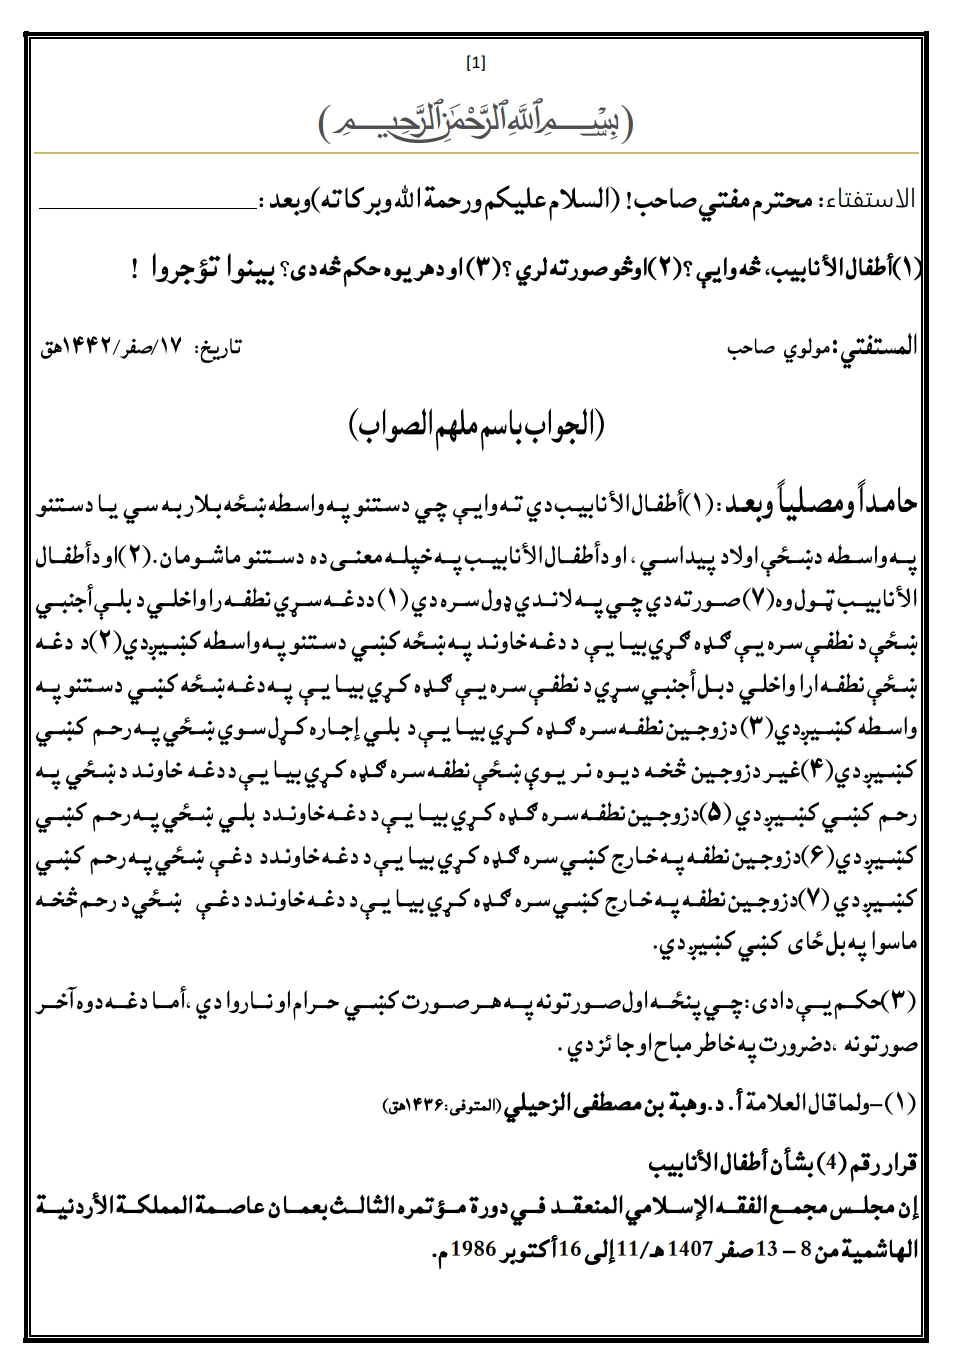 [1]
(بِسْمِ اللَّهِ الرَّحْمَٰنِ الرَّحِيمِ)
الاستفتاء: محترم مفتي صاحب! (السلام علیکم ورحمة الله وبرکاته) وبعد :ـــــــــــــــــــــــ
(۱)أطفال الأنابیب، څه وایي ؟(۲)اوڅو صورته لري ؟(۳) او دهریوه حکم څه دی؟ بینوا تؤجروا !
المستفتي:مولوي صاحب
تاریخ: ۱۷/صفر/۱۴۴۲هق
(الجواب باسم ملهم الصواب)
حامداً ومصلیاً وبعد: (۱)أطفال الأنابیب دي ته وایي چي دستنو په واسطه ښځه بلاربه سي یا دستنو
په واسطه دښځي اولاد پیداسي ، او دأطفال الأنابیب په خپله معنی ده دستنو ماشومان.(۲)او دأطفال
الأنابیب ټول وه(۷) صورته دي چي په لاندي ډول سره دي(۱) ددغه سړي نطفه را واخلي د بلي أجنبي
ښځي د نطفې سره یې ګډه کړي بیا یې د دغه خاوند په ښځه کښي دستنو په واسطه کښیږدي(۲)د دغه
ښځي نطفه ارا واخلي دبل أجنبي سړي د نطفې سره یې ګډه کړي بیا یې په دغه ښځه کښي دستنو په
واسطه کښیږدي(۳) دزوجین نطفه سره ګډه کړي بیا یې د بلي إجاره کړل سوي ښځي په رحم کښي
کښیږدي(۴)غیر دزوجین څخه دیوه نر یوې ښځي نطفه سره ګډه کړي بیا یې ددغه خاوند د ښځي په
رحم کښي کښیږدي (۵)دزوجین نطفه سره ګډه کړي بیا یې د دغه خاوندد بلي ښځي په رحم کښي
کښیږدي(۶)دزوجین نطفه په خارج کښي سره ګډه کړي بیا یې د دغه خاوندد دغې ښځي په رحم کښي
کښیږدي (۷)دزوجین نطفه په خارج کښي سره ګډه کړي بیا یې د دغه خاوندد دغې ښځي د رحم څخه
ماسوا په بل ځای کښي کښیږدي.
(۳)حکم یې دادی: چي پنځه اول صورتونه په هر صورت کښي حرام او ناروا دي ،أما دغه دوه آخر
صورتونه ،دضرورت په خاطر مباح او جائز دي .
(۱)-ولما قال العلامة أ. د. وهبة بن مصطفی الزحيلي (المتوفی:۱۴۳۶هق)
قرار رقم (4) بشأن أطفال الأنابيب
إن مجلس مجمع الفقه الإسلامي المنعقد في دورة مؤتمره الثالث بعمان عاصمة المملكة الأردنية
الهاشمية من 8 – 13 صفر 1407 هـ/11 إلى 16 أكتوبر 1986 م.